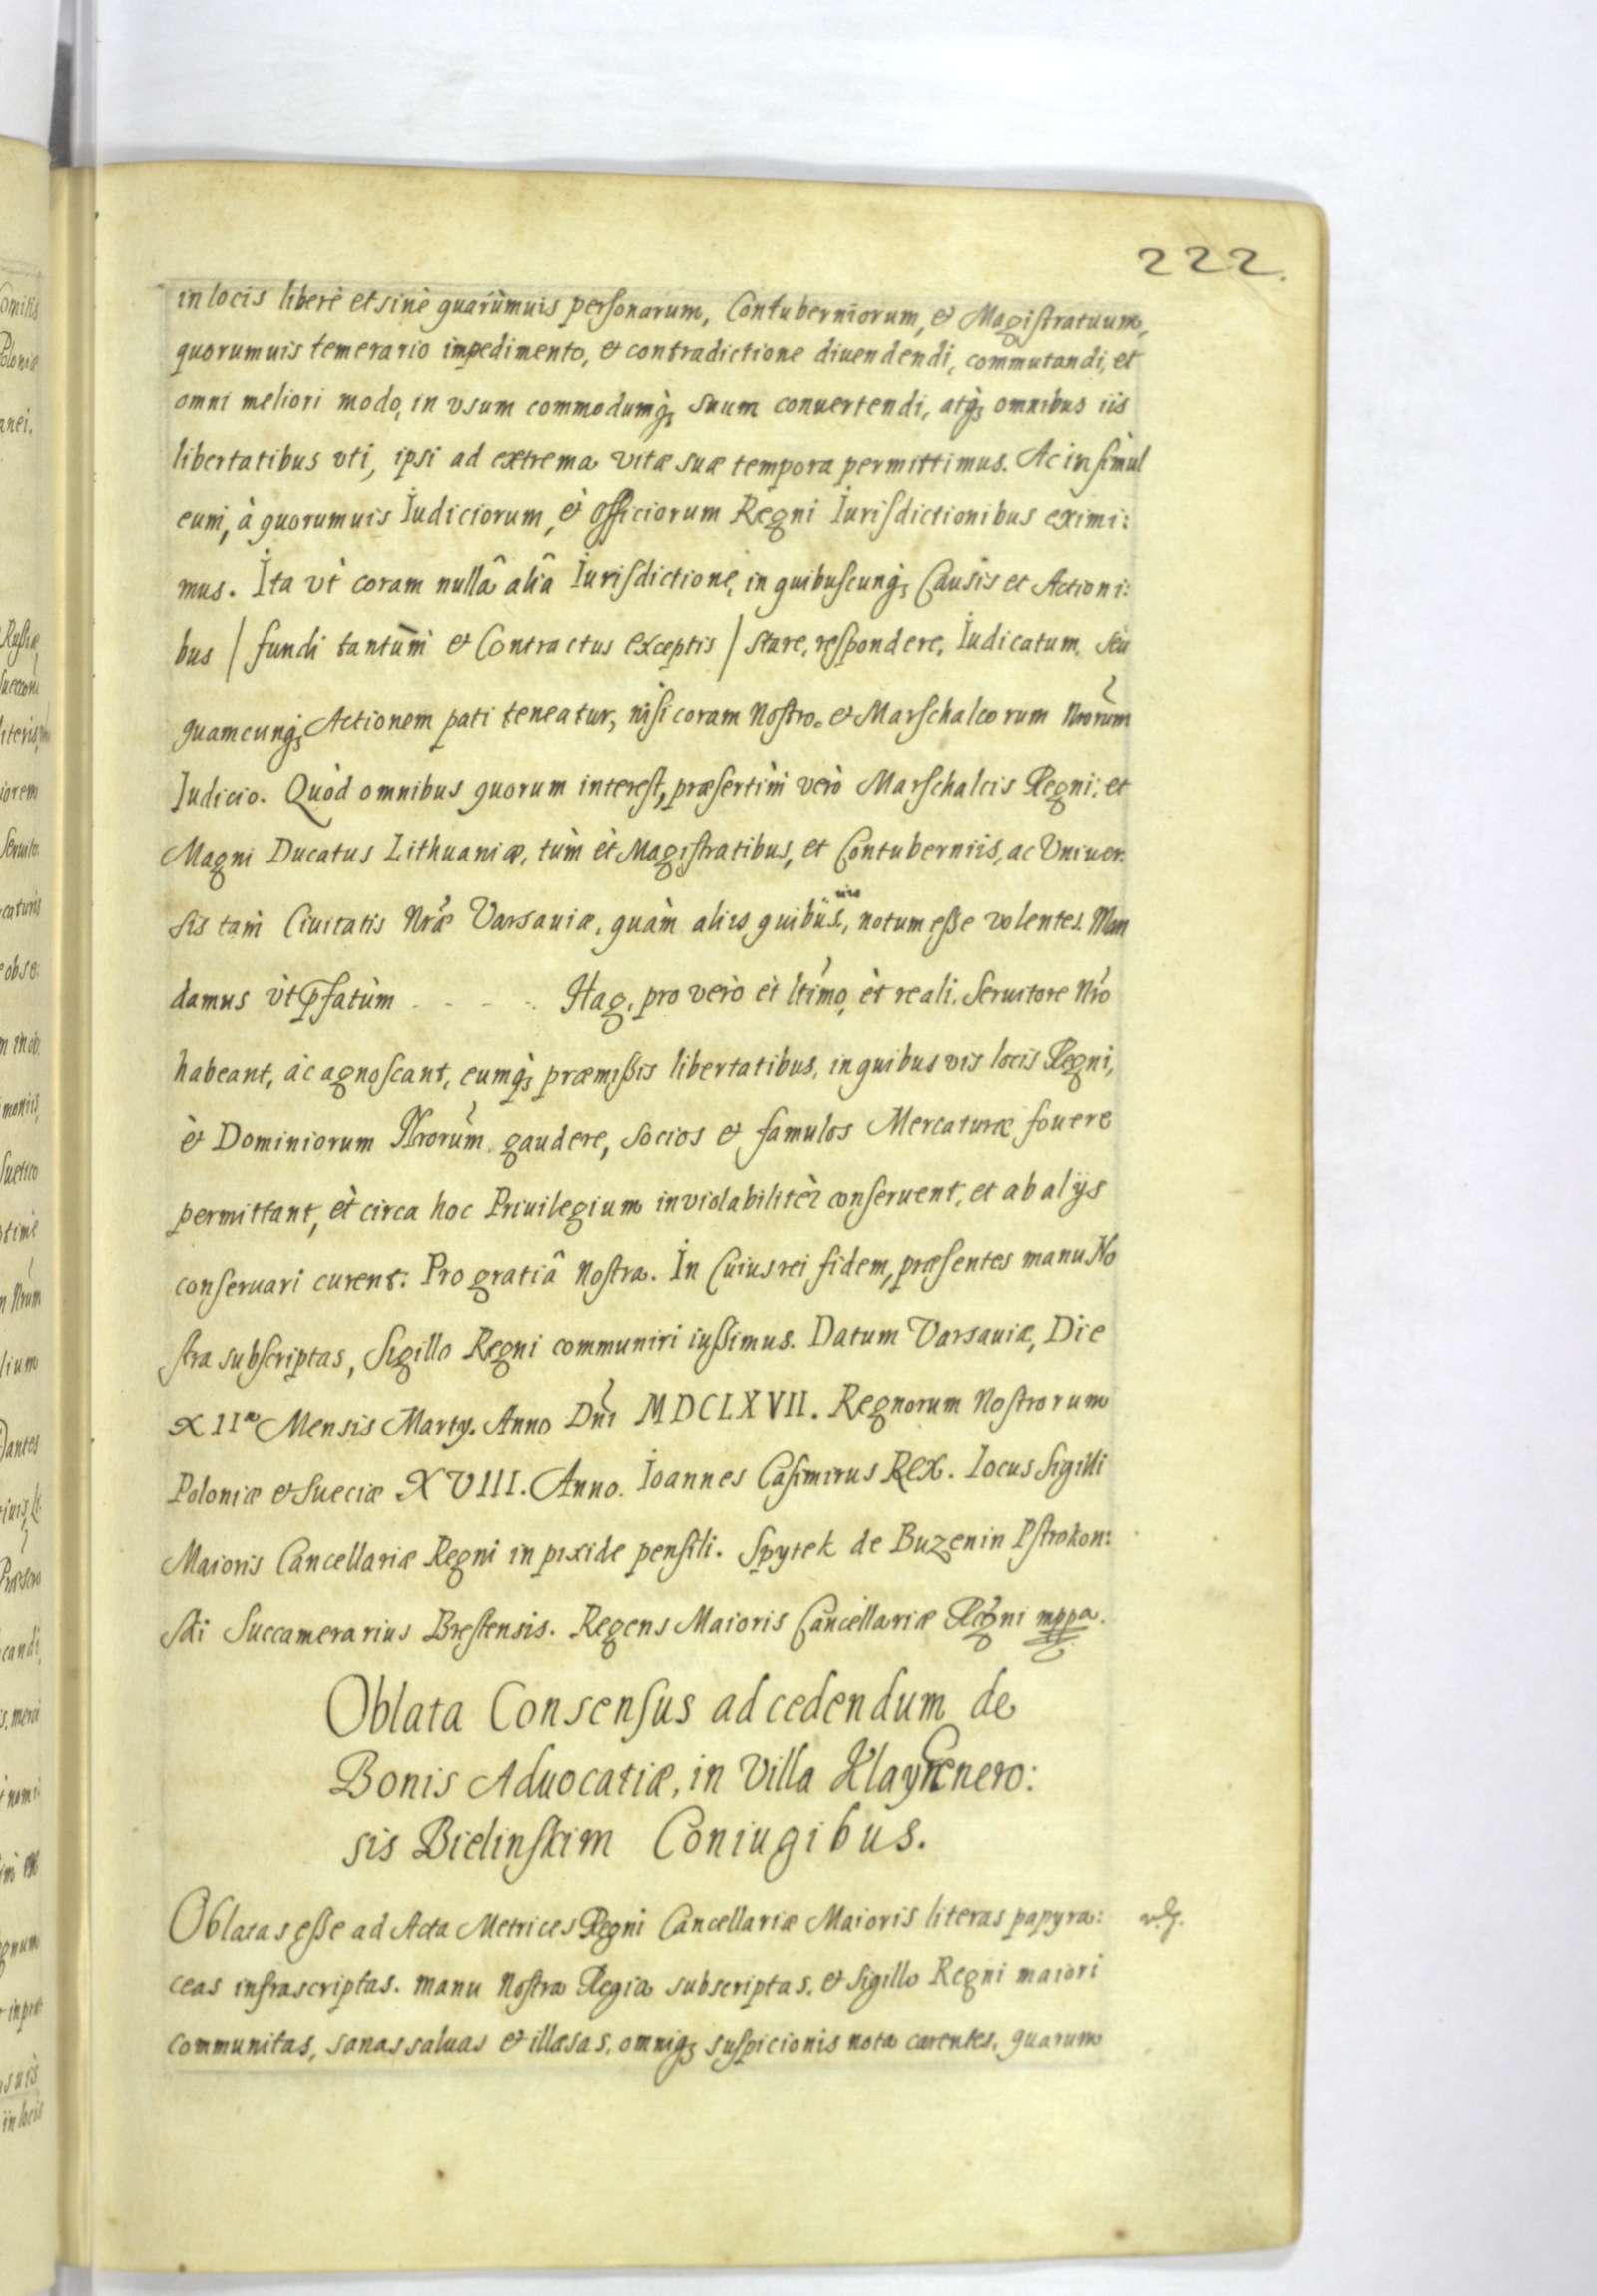 222.
in locis liberè et sinè quarùmuis personarum, Contuberniorum, et Magistratuum,
quorumuis temerario impedimento, et contradictione diuendendi, commutandi, et
omni meliori modo, in vsum commodumq; suum conuertendi, atq; omnibus iis
libertatibus vti, ipsi ad extrema vitæ suæ tempora permittimus. Ac insimùl
eum, à quorumuis Iudiciorum, et officiorum Regni Iurisdictionibus eximi:
mus. Ita vt coram nullâ aliâ Iurisdictione, in quibuscunq; Causis et Actioni:
bus / fundi tantùm et Contractus exceptis / stare, respondere, Iudicatum, seu
quamcunq; Actionem pati teneatur, nisi coram Nostro, et Marschalcorum Nrorum
Iudicio. Quòd omnibus quorum interest, præsertìm verò Marschalcis Regni, et
Magni Ducatus Lithuaniæ, tùm et Magistratibus, et Contuberniis, ac Vniuer:
sis tàm Ciuitatis Nræ Varsauiæ, quàm aliis quibusuis, notum esse volentes. Man
damus vt pfatùm - - - - Hag, pro verò et ltimo, et reali Seruitore Nro
habeant, ac agnoscant, eumq; præmissis libertatibus, in quibus vis locis Regni,
et Dominiorum Nrorum gaudere, socios et famulos Mercaturæ fouere
permittant, et circa hoc Priuilegium inviolabilitèr conseruent, et ab alys
conseruari curent. Pro gratiâ Nostra. In Cuius rei fidem, præsentes manu No
stra subscriptas, Sigillo Regni communiri iussimus. Datum Varsauiæ, Die
XII Mensis Marty. Anno Dni MDCLXVII. Regnorum Nostrorum
Poloniæ et Sueciæ XVIII. Anno. Ioannes Casimirus Rex. Locus Sigilli
Maioris Cancellariæ Regni in pixide pensili. Spytek de Buzenin Pstrokon:
ski Succamerarius Brestensis. Regens Maioris Cancellariæ Regni mppa.
Oblata Consensus ad cedendum de
Bonis Aduocatiæ, in Villa Genero:
sis Bielinskim Coniugibus.
Oblatas esse ad Acta Metrices Regni Cancellariæ Maioris literas papyra:
ceas infrascriptas. manu Nostra Regia subscriptas, et Sigillo Regni maiori
communitas, sanas saluas et illæsas, omniq; suspicionis nota carentes, quarum